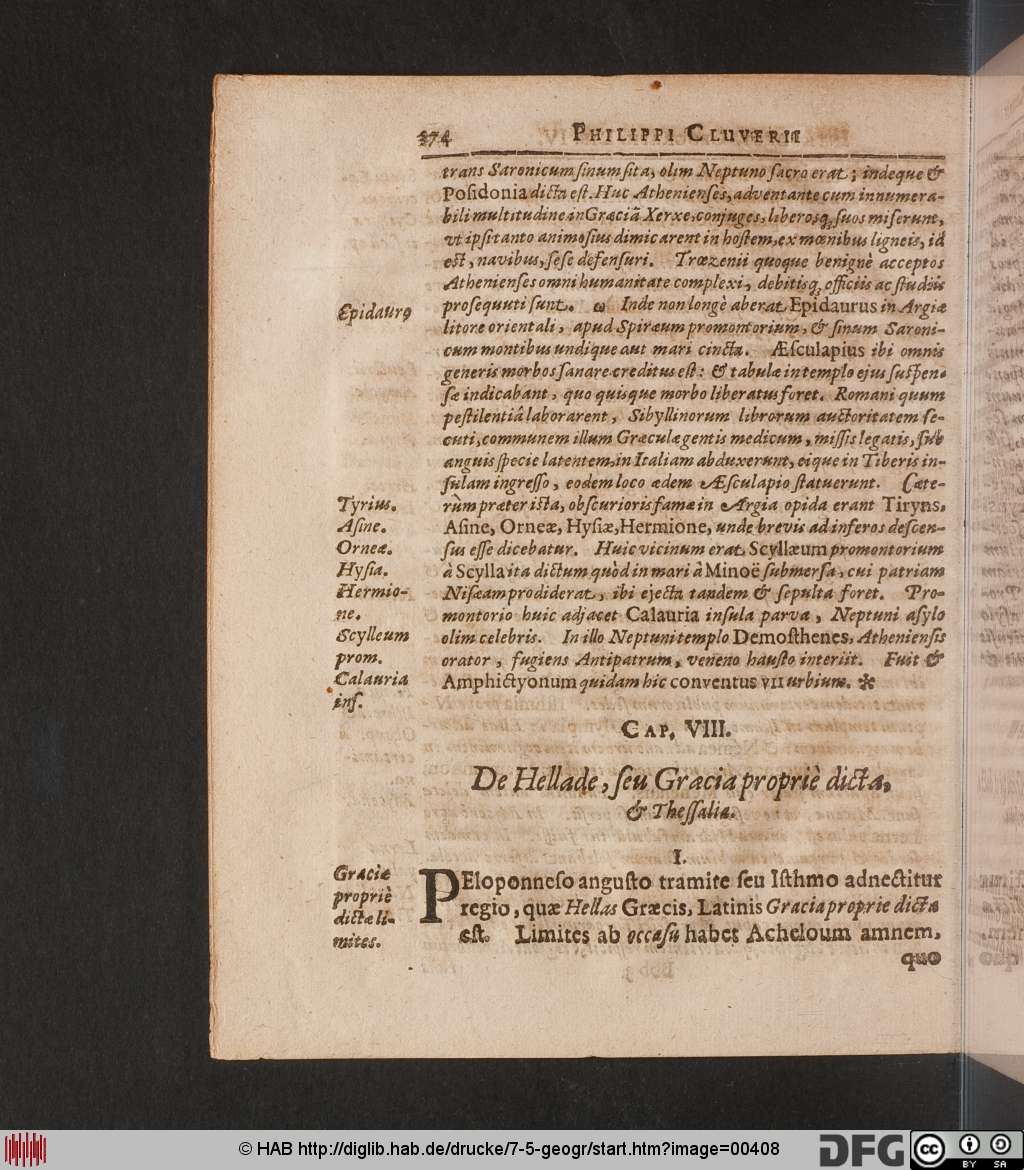 374 PHILIPPI CLUVERII
trans Saronicum sinum sita, olim Neptuno sacro erat; indeque &
Posidonia dicta est. Huc Athenienses, adventante cum innumera-
bili multitudine in Græciã Xerxe, conjuges, liberosq́; suos miserunt,
vt ipsi tanto animosius dimicarent in hostem, ex mœnibus ligneis, id
est, navibus, sese defensuri. Trœzenii quoque benignè acceptos
Athenienses omni humanitate complexi, debitisq́; officiis ac studiis
prosequuti sunt. ω Inde non longè aberat Epidaurus in Argiæ
Epidaurꝰ
litore orientali, apud Spiræum promontorium, & sinum Saroni-
cum montibus undique aut mari cincta. Æsculapius ibi omnis
generis morbos sanare creditus est: & tabulæ in templo ejus suspen-
sæ indicabant, quo quisque morbo liberatus foret. Romani quum
pestilentiâ laborarent, Sibyllinorum librorum auctoritatem se-
cuti, communem illum Græculæ gentis medicum, missis legatis, sub
anguis specie latentem, in Italiam abduxerunt, eique in Tiberis in-
sulam ingresso, eodem loco ædem Æsculapio statuerunt. Cæte-
rùm præter ista, obscurioris famæ in Argia opida erant Tiryns,
Tyrius.
Asine, Orneæ, Hysiæ, Hermione, unde brevis ad inferos descen-
Asine.
sus esse dicebatur. Huic vicinum erat Scyllæum promontorium
Orneæ.
à Scylla ita dictum quòd in mari à Minoë submersa, cui patriam
Hysia.
Nisæam prodiderat, ibi ejecta tandem & sepulta foret. Pro-
Hermio-
montorio huic adjacet Calauria insula parva, Neptuni asylo
ne.
olim celebris. In illo Neptuni templo Demosthenes, Atheniensis
Scylleum
orator, fugiens Antipatrum, veneno hausto interiit. Fuit &
prom.
Amphictyonum quidam hic conventus VII urbium. *
Calauria
ins.
CAP. VIII.
De Hellade, seu Græcia propriè dicta,
& Thessalia.
I.
Græciæ
propriè
dictæ li-
mites.
PEloponneso angusto tramite seu Isthmo adnectitur
regio, quæ Hellas Græcis, Latinis Græcia proprie dicta
est. Limites ab occasu habet Acheloum amnem,
quo
© HAB http://diglib.hab.de/drucke/7-5-geogr/start.htm?image=00408
DFG
cc
BY SA